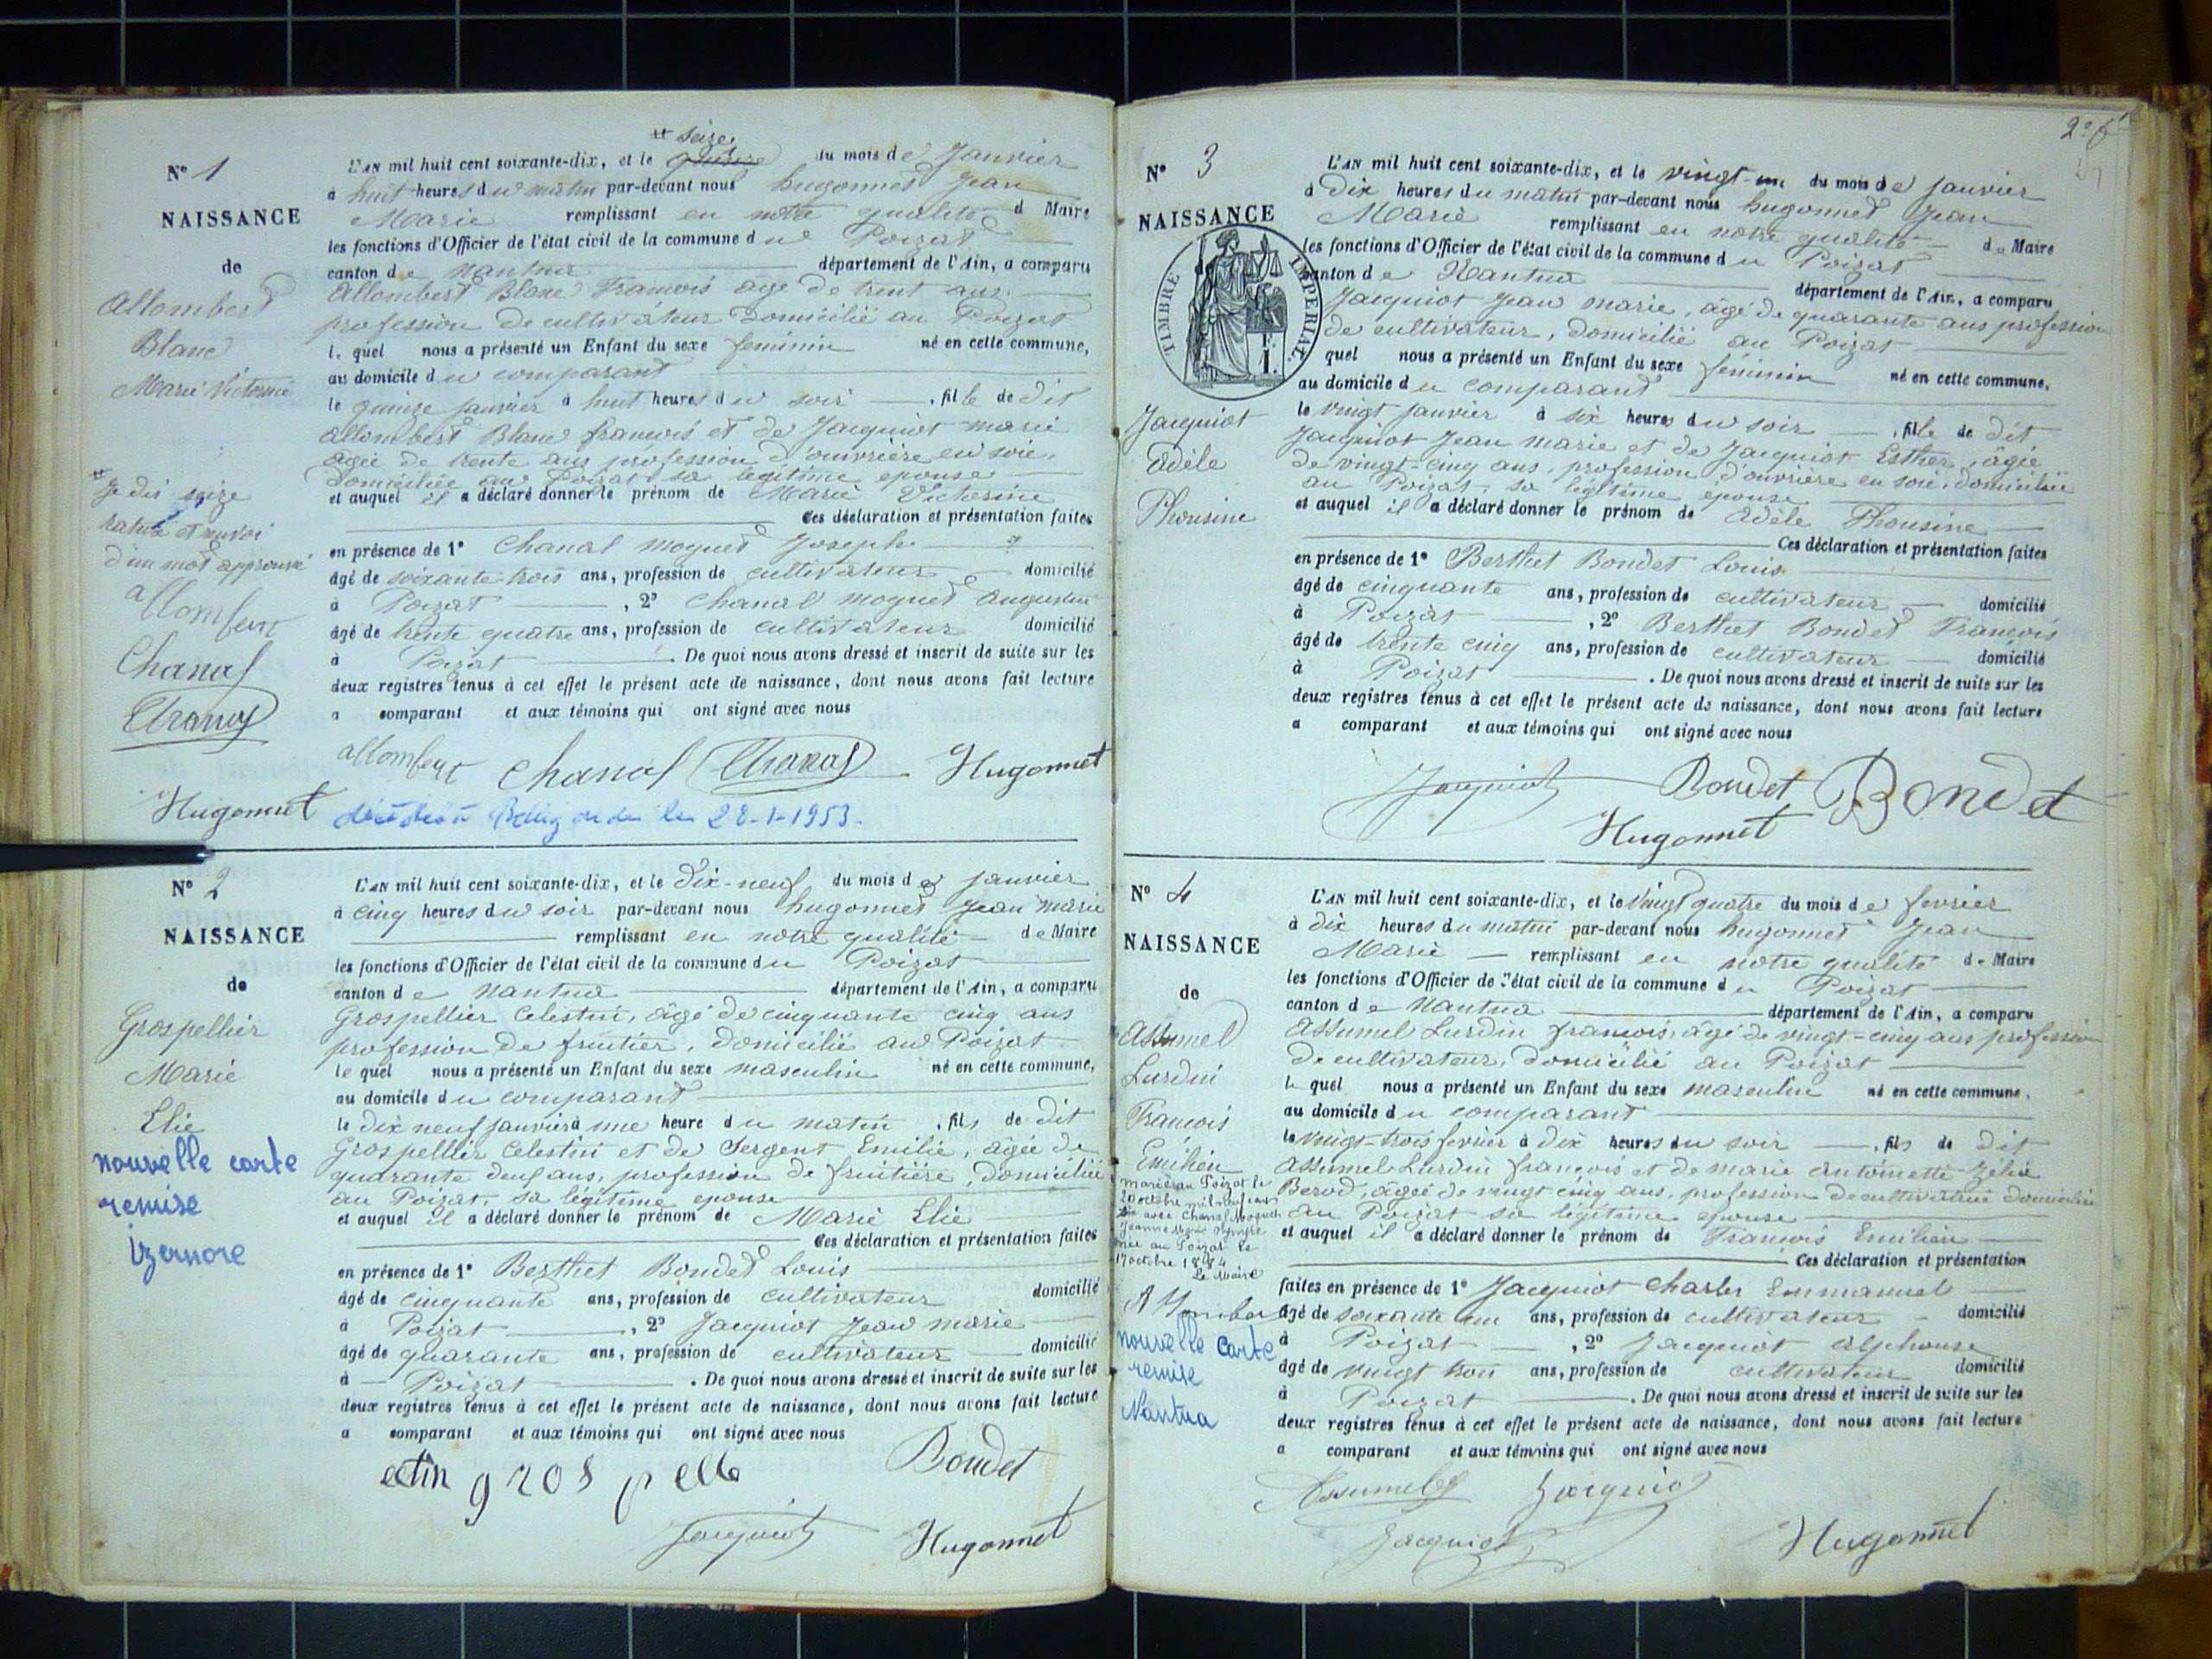 N° 1
NAISSANCE
de
Allombert
Blanc
Marie Victorine
# Je dis seize
rature et renvoi
d'un mot approuvé
allombert
Chanal
Chanal
Hugonnet
# seize
L'AN mil huit cent soixante-dix, et le quinze du mois de Janvier
à huit heures du matin par-devant nous hugonnet Jean
Marie remplissant en notre qualité d Maire
les fonctions d'Officier de l'état civil de la commune du Poizat
canton de Nantua département de l'Ain, a comparu
Allombert Blanc Francois age de trent ans
profession de cultivateur domicilié au Poizat
le quel nous a présenté un Enfant du sexe feminin né en cette commune,
au domicile du comparant
le quinze janvier à huit heures du soir , fille de dit
allombert Blanc francois et de Jacquiot marie
agée de trente ans profession d'ouvrière en soie,
domiciliée au Poizat sa legitime epouse
et auquel il a déclaré donner le prénom de Marie Victorine
Ces déclaration et présentation faites
en présence de 1° Chanal moguet Joseph
âgé de soixante-trois ans, profession de cultivateur domicilié
à Poizat , 2° Chanal moguet Augustin
âgé de trente quatre ans, profession de cultivateur domicilié
à Poizat . De quoi nous avons dressé et inscrit de suite sur les
deux registres tenus à cet effet le présent acte de naissance, dont nous avons fait lecture
a comparant et aux témoins qui ont signé avec nous
allombert Chanal Chanal Hugonnet
le 28-1-1953.
N° 2
NAISSANCE
de
Grospellier
Marie
Elie
nouvelle carte
remise
izernore
L'AN mil huit cent soixante-dix, et le dix-neuf du mois de janvier
à cinq heures du soir par-devant nous hugonnet Jean Marie
remplissant en notre qualité de Maire
les fonctions d'Officier de l'état civil de la commune du Poizat
canton de Nantua département de l'Ain, a comparu
Grospellier Celestin, âgé de cinquante cinq ans
profession de fruitier, domicilié au Poizat
le quel nous a présenté un Enfant du sexe masculin né en cette commune,
au domicile du comparant
le dix neuf janvier à une heure du matin , fils de dit
Grospellier Celestin et de Sergent Emilie, âgée de
quarante deux ans, profession de fruitière, domiciliée
au Poizat, sa légitime epouse
et auquel il a déclaré donner le prénom de Marie Elie
Ces déclaration et présentation faites
en présence de 1° Berthet Bondet Louis
âgé de cinquante ans, profession de cultivateur domicilié
à Poizat , 2° Jacquiot Jean marie
âgé de quarante ans, profession de cultivateur domicilié
à Poizat . De quoi nous avons dressé et inscrit de suite sur les
deux registres tenus à cet effet le présent acte de naissance, dont nous avons fait lecture
a comparant et aux témoins qui ont signé avec nous
Bondet
Jacquiot Hugonnet
N° 3
NAISSANCE
TIMBRE IMPERIAL
Jacquiot
Adèle
Phousine
L'AN mil huit cent soixante-dix, et le vingt-un du mois de janvier
à Dix heures du matin par-devant nous hugonnet Jean
Marie remplissant en notre qualité de Maire
les fonctions d'Officier de l'état civil de la commune du Poizat
canton de Nantua département de l'Ain, a comparu
Jacquiot Jean marie, âgé de quarante ans profession
de cultivateur, domicilié au Poizat
quel nous a présenté un Enfant du sexe féminin né en cette commune,
au domicile du comparant
le vingt janvier à six heures du soir , fille de dit
Jacquiot Jean marie et de Jacquiot Esther, âgée
de vingt-cinq ans, profession d'ouvrière en soie, domiciliée
au Poizat, sa légitime épouse
et auquel il a déclaré donner le prénom de Adèle Phousine
Ces déclaration et présentation faites
en présence de 1° Berthet Bondet Louis
âgé de cinquante ans, profession de cultivateur domicilié
à Poizat , 2° Berthet Bondet Francois
âgé de trente cinq ans, profession de cultivateur domicilié
à Poizat . De quoi nous avons dressé et inscrit de suite sur les
deux registres tenus à cet effet le présent acte de naissance, dont nous avons fait lecture
a comparant et aux témoins qui ont signé avec nous
Jacquiot Bondet Bondet
Hugonnet
N° 4
NAISSANCE
de
Assumel
Lurdin
Francois
Emilien
Marié au Poizat le
20 octobre mil neuf cent
avec Chanal Moguet
Jeanne Marie
née au Poizat le
17 octobre 1884
Le Maire
nouvelle carte
remise
Nantua
L'AN mil huit cent soixante-dix, et le Vingt quatre du mois de fevrier
à dix heures du matin par-devant nous hugonnet Jean
Marie remplissant en notre qualité de Maire
les fonctions d'Officier de l'état civil de la commune du Poizat
canton de Nantua département de l'Ain, a comparu
Assumel Lurdin francois, âgé de vingt-cinq ans profession
de cultivateur, domicilié au Poizat
le quel nous a présenté un Enfant du sexe masculin né en cette commune,
au domicile du comparant
le vingt-trois fevrier à dix heures du soir , fils de dit
Assumel Lurdin françois et de marie antoinette Zélie
Berod, âgée de vingt cinq ans, profession de cultivatrice domiciliée
au Poizat sa légitime epouse
et auquel il a déclaré donner le prénom de Francois Emilien
Ces déclaration et présentation
faites en présence de 1° Jacquiot Charles Emmanuel
âgé de soixante un ans, profession de cultivateur domicilié
à Poizat , 2° Jacquiot Alphonse
âgé de vingt trois ans, profession de cultivateur domicilié
à Poizat . De quoi nous avons dressé et inscrit de suite sur les
deux registres tenus à cet effet le présent acte de naissance, dont nous avons fait lecture
a comparant et aux témoins qui ont signé avec nous
Assumel Jacquiot
Jacquiot Hugonnet